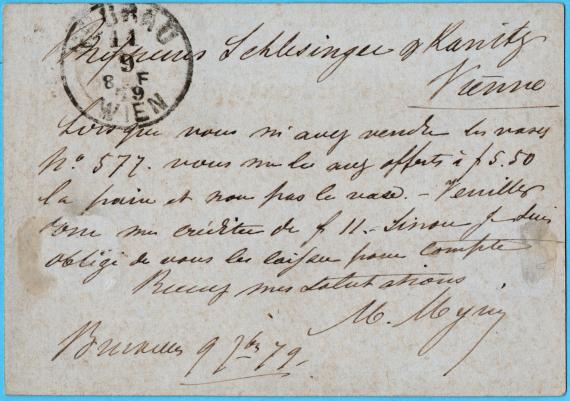 NEUBAU
11
9
8 F
79
WIEN
Messieurs Schlesinger & Kanitz
Vienne
Lorsque vous m'avez vendu les vases
No. 577. vous me les avez offerts à f 5.50
la paire et non pas le vase. – Veuillez
donc me créditer de f 11.– Sinon je suis
obligé de vous les laisser pour compte
Recevez mes salutations
M.
Bruxelles 9 7bre 79.